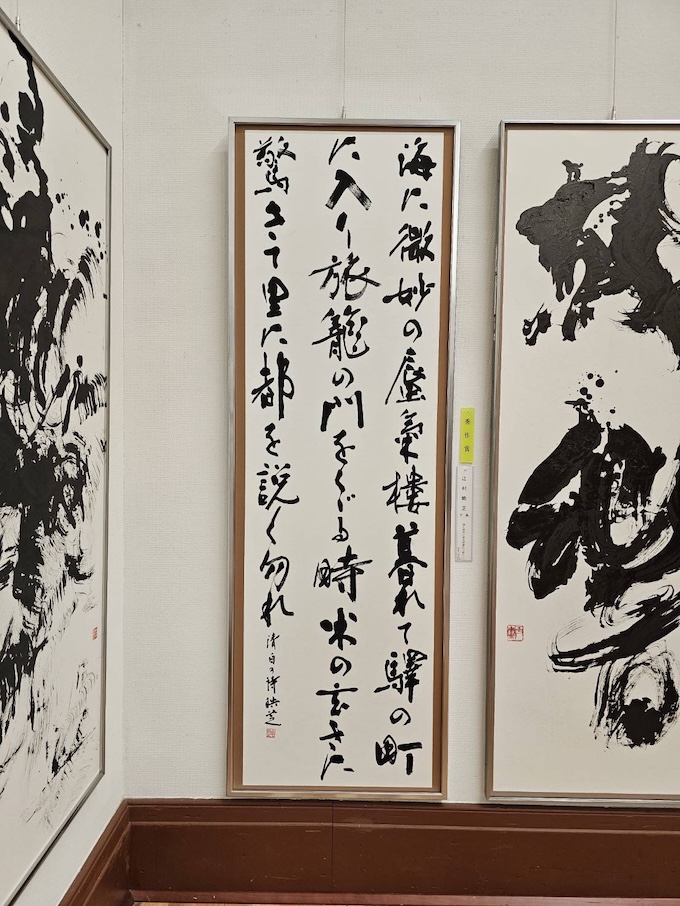 海に微妙の蜃氣樓暮れて驛の町
に入り旅籠の門をくぐる時米の玄きに
驚きて里に都を説く勿れ
清白の詩
秀作賞